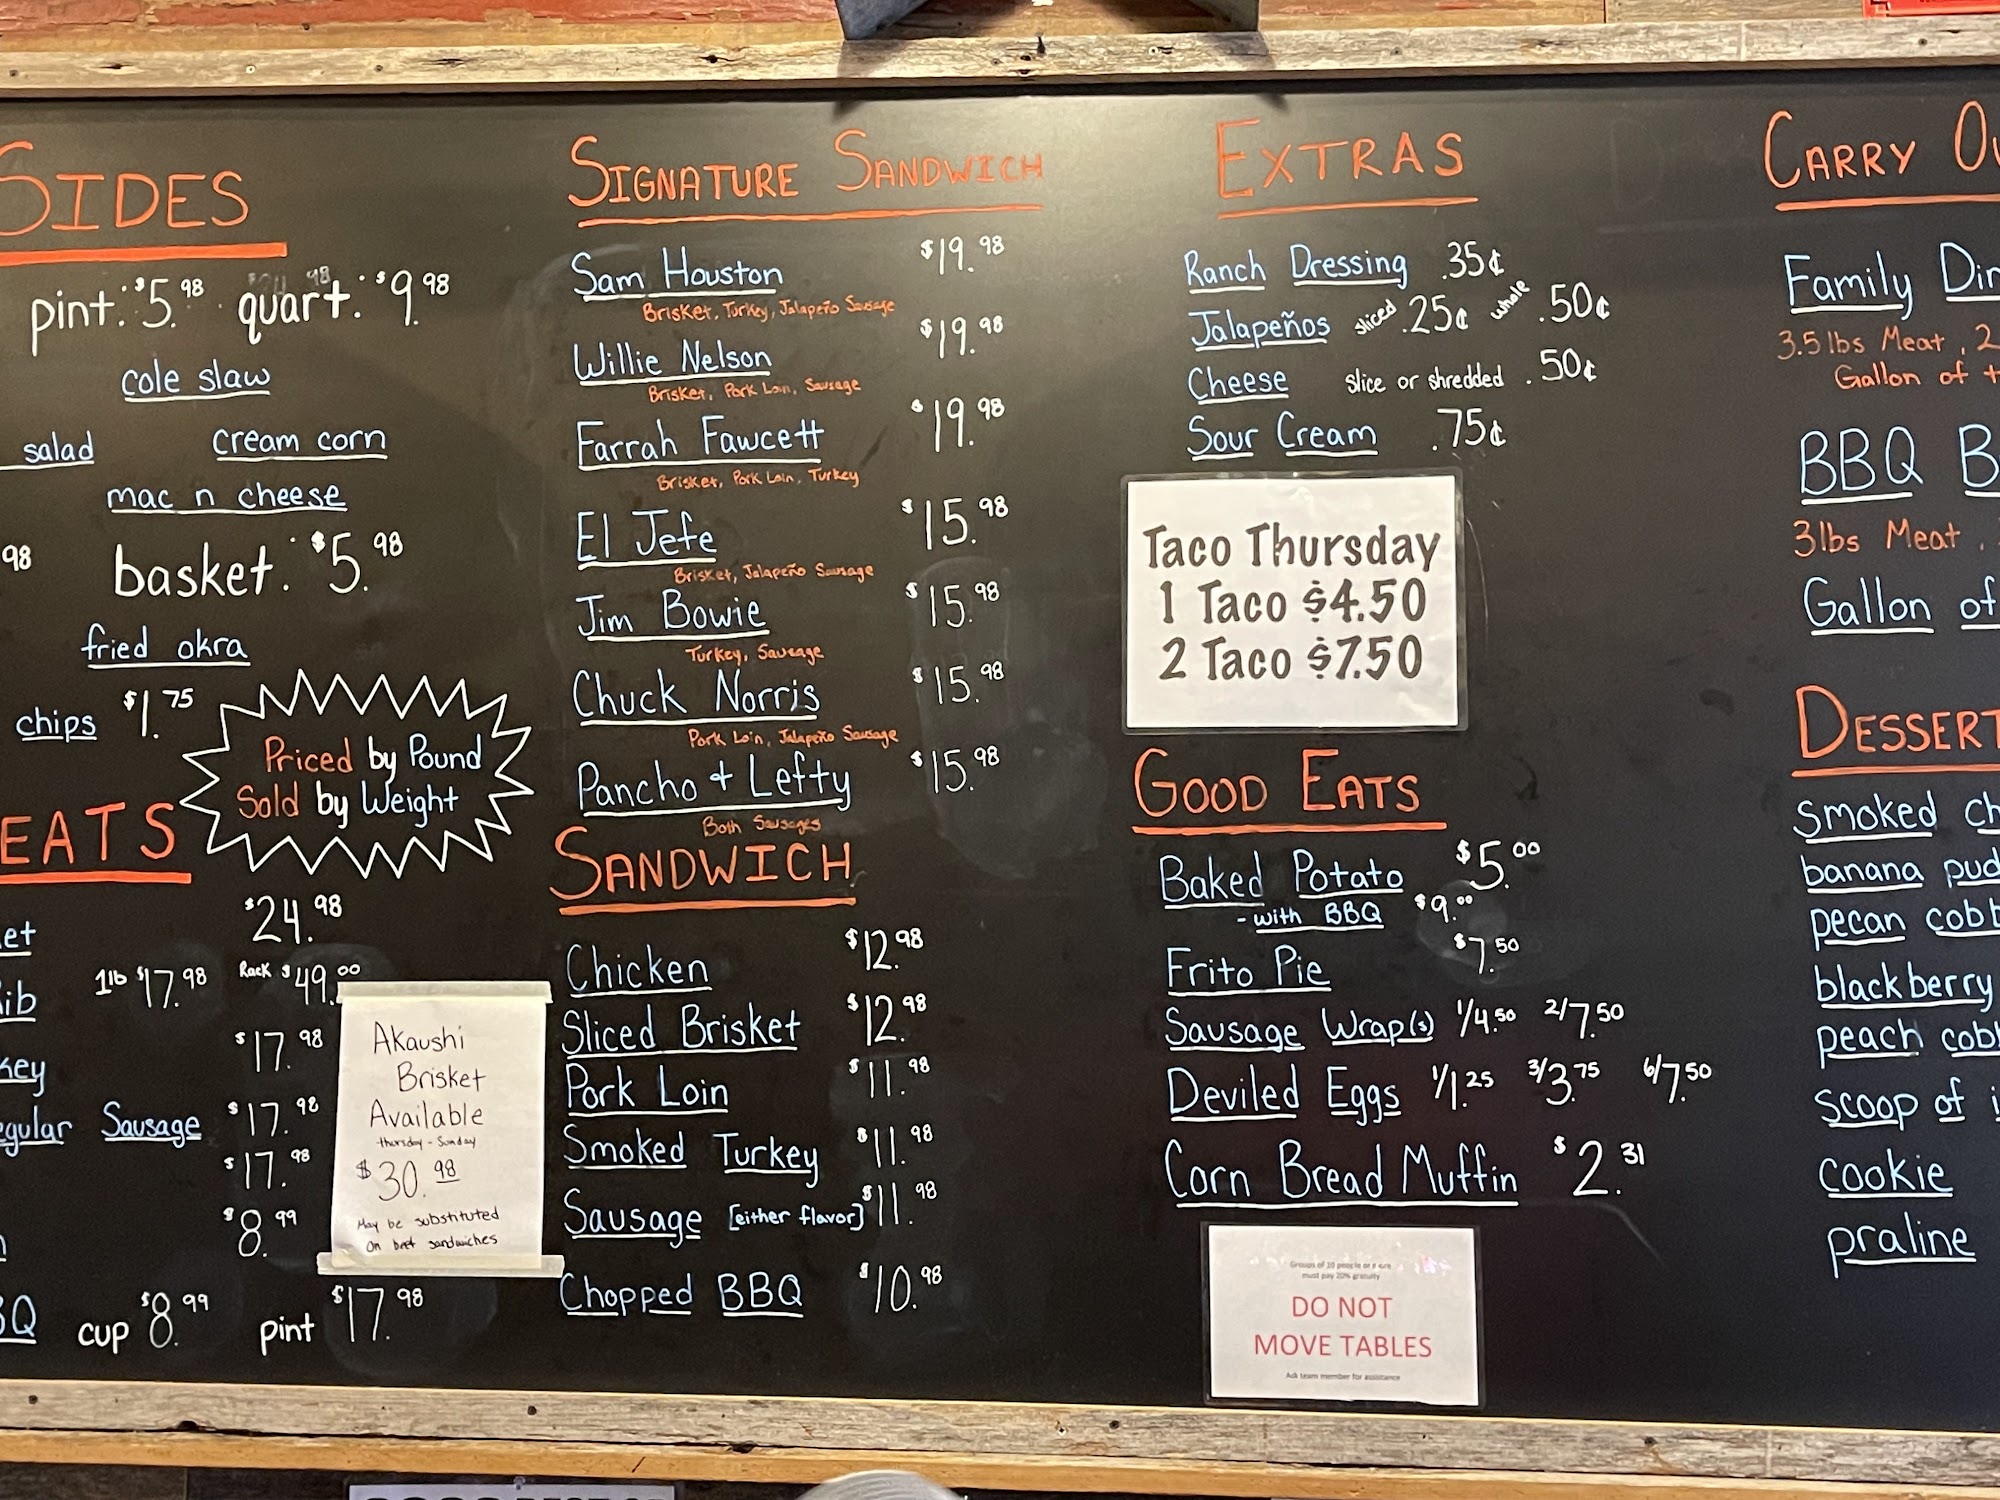 SIDES
pint: $5.98 quart: $9.98
cole slaw
salad cream corn
mac n cheese
98 basket: $5.98
fried okra
chips $1.75
Priced by Pound
Sold by Weight
EATS
$24.98
1lb $17.98 Rack $49.00
$17.98
Sausage $17.98
$17.98
$8.99
BQ cup $8.99 pint $17.98
Akaushi
Brisket
Available
Thursday - Sunday
$30.98
May be substituted
On beef sandwiches
SIGNATURE SANDWICH
Sam Houston $19.98
Brisket, Turkey, Jalapeño Sausage
Willie Nelson $19.98
Brisket, Pork Loin, Sausage
Farrah Fawcett $19.98
Brisket, Pork Loin, Turkey
El Jefe $15.98
Brisket, Jalapeño Sausage
Jim Bowie $15.98
Turkey, Sausage
Chuck Norris $15.98
Pork Loin, Jalapeño Sausage
Pancho + Lefty $15.98
Both Sausages
SANDWICH
Chicken $12.98
Sliced Brisket $12.98
Pork Loin $11.98
Smoked Turkey $11.98
Sausage [either flavor] $11.98
Chopped BBQ $10.98
EXTRAS
Ranch Dressing .35¢
Jalapeños sliced .25¢ whole .50¢
Cheese slice or shredded .50¢
Sour Cream .75¢
Taco Thursday
1 Taco $4.50
2 Taco $7.50
GOOD EATS
Baked Potato $5.00
- with BBQ $9.00
Frito Pie $7.50
Sausage Wrap(s) 1/4.50 2/7.50
Deviled Eggs 1/1.25 3/3.75 6/7.50
Corn Bread Muffin $2.31
Groups of 10 people or more
must pay 20% gratuity
DO NOT
MOVE TABLES
Ask team member for assistance
CARRY
Family
3.5 lbs Meat, 2
Gallon of
BBQ B
3lbs Meat,
Gallon of
DESSERT
smoked
banana
pecan
blackberry
peach
scoop of
cookie
praline